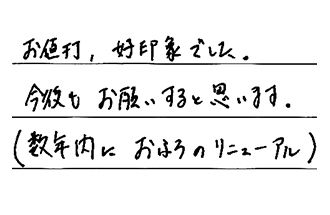 お値打，好印象でした。
今後も お願いすると思います。
(数年内に おふろのリニューアル)